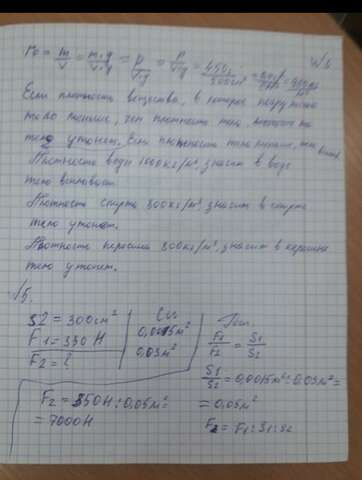 ro = m/V = m·g/V·g = P/V·g = P/V·g = 450г/500см³ =
Если плотность вещества, в которое погружено
тело меньше, чем плотность тела, то
тело утонет. Если плотность тела меньше, тело
Плотность воды 1000кг/м³, значит в воде
тело всплывает.
Плотность спирта 800кг/м³, значит в спирте
тело утонет.
Плотность керосина 800кг/м³, значит в керосине
тело утонет.
√5.
S2 = 300см²
F1 = 350Н
F2 = ?
Си
0,0015м²
0,03м²
F1/F2 = S1/S2
S1/S2 = 0,0015м² : 0,03м² =
= 0,05м²
F2 = F1 : S1 : S2
F2 = 350Н : 0,05м² =
= 7000Н